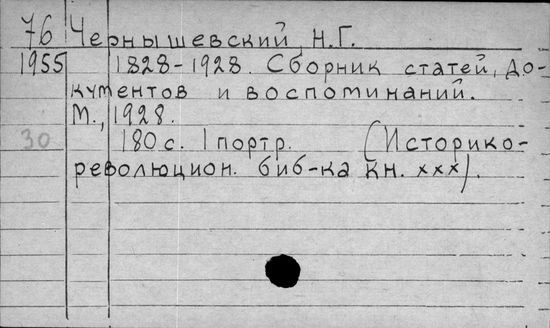 76 Чернышевский, Н.Г.
1955 1828-1928. Сборник статей, до-
кументов и воспоминаний.
М., 1928.
30 180 с. 1 портр. (Историко-
революцион. биб-ка кн. xxx).